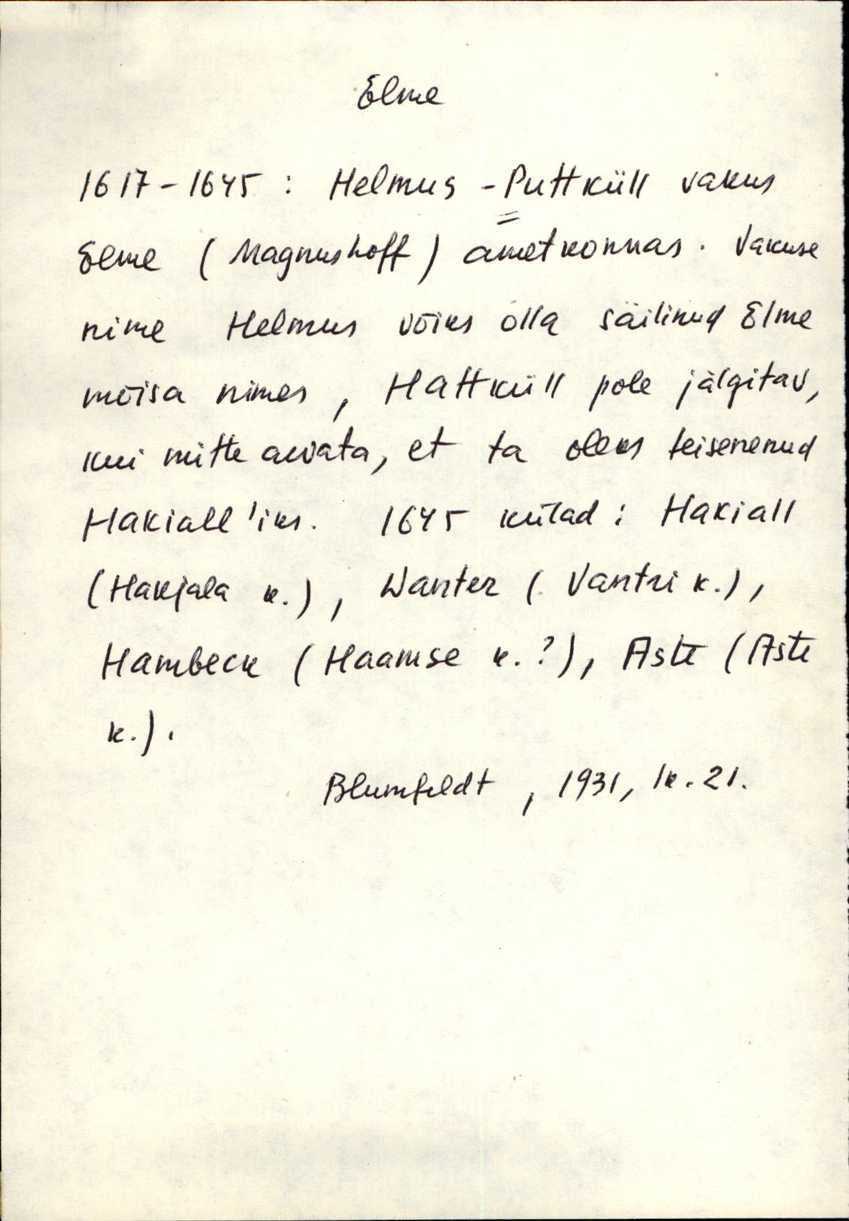 Elme
1617-1645 : Helmus - Puttküll vakus
Elme (Magnushoff) ametkonnas. Vakuse
nime Helmus võiks olla säilinud Elme
mõisa nimes, Hattküll pole jälgitav,
kui mitte arvata, et ta oleks teisenenud
Hakiall'iks. 1645 külad: Hakiall
(Hakjala k.), Wanter (Vantri k.),
Hambeck (Haamse k.?), Aste (Aste
k.).
Blumfeldt, 1931, lk. 21.